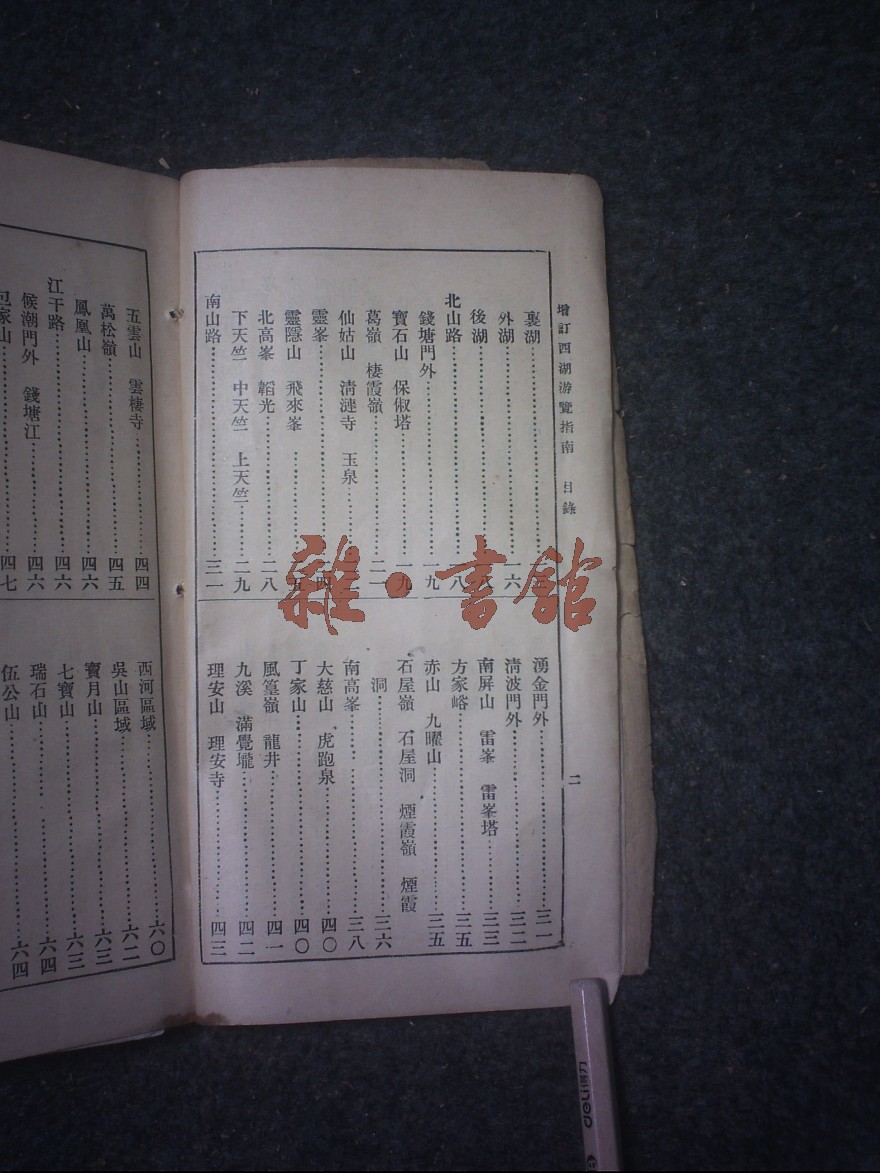 增訂西湖游覽指南 目錄
二
裏湖
外湖 一六
後湖
北山路
錢塘門外 一九
寶石山 保俶塔 一九
葛嶺 棲霞嶺 二一
仙姑山 清漣寺 玉泉
靈峯
靈隱山 飛來峯
北高峯 韜光 二八
下天竺 中天竺 上天竺 二九
南山路 三一
湧金門外 三一
清波門外 三二
南屏山 雷峯 雷峯塔 三三
方家峪 三五
赤山 九曜山 三五
石屋嶺 石屋洞 煙霞嶺 煙霞
洞 三六
南高峯 三八
大慈山 虎跑泉 四〇
丁家山 四〇
風篁嶺 龍井 四一
九溪 滿覺壠 四二
理安山 理安寺 四三
五雲山 雲棲寺 四四
萬松嶺 四五
鳳凰山 四六
江干路 四六
候潮門外 錢塘江 四六
包家山 四七
西河區域 六〇
吳山區域 六二
寶月山 六三
七寶山 六三
瑞石山 六四
伍公山 六四
雜·書館
deli得力